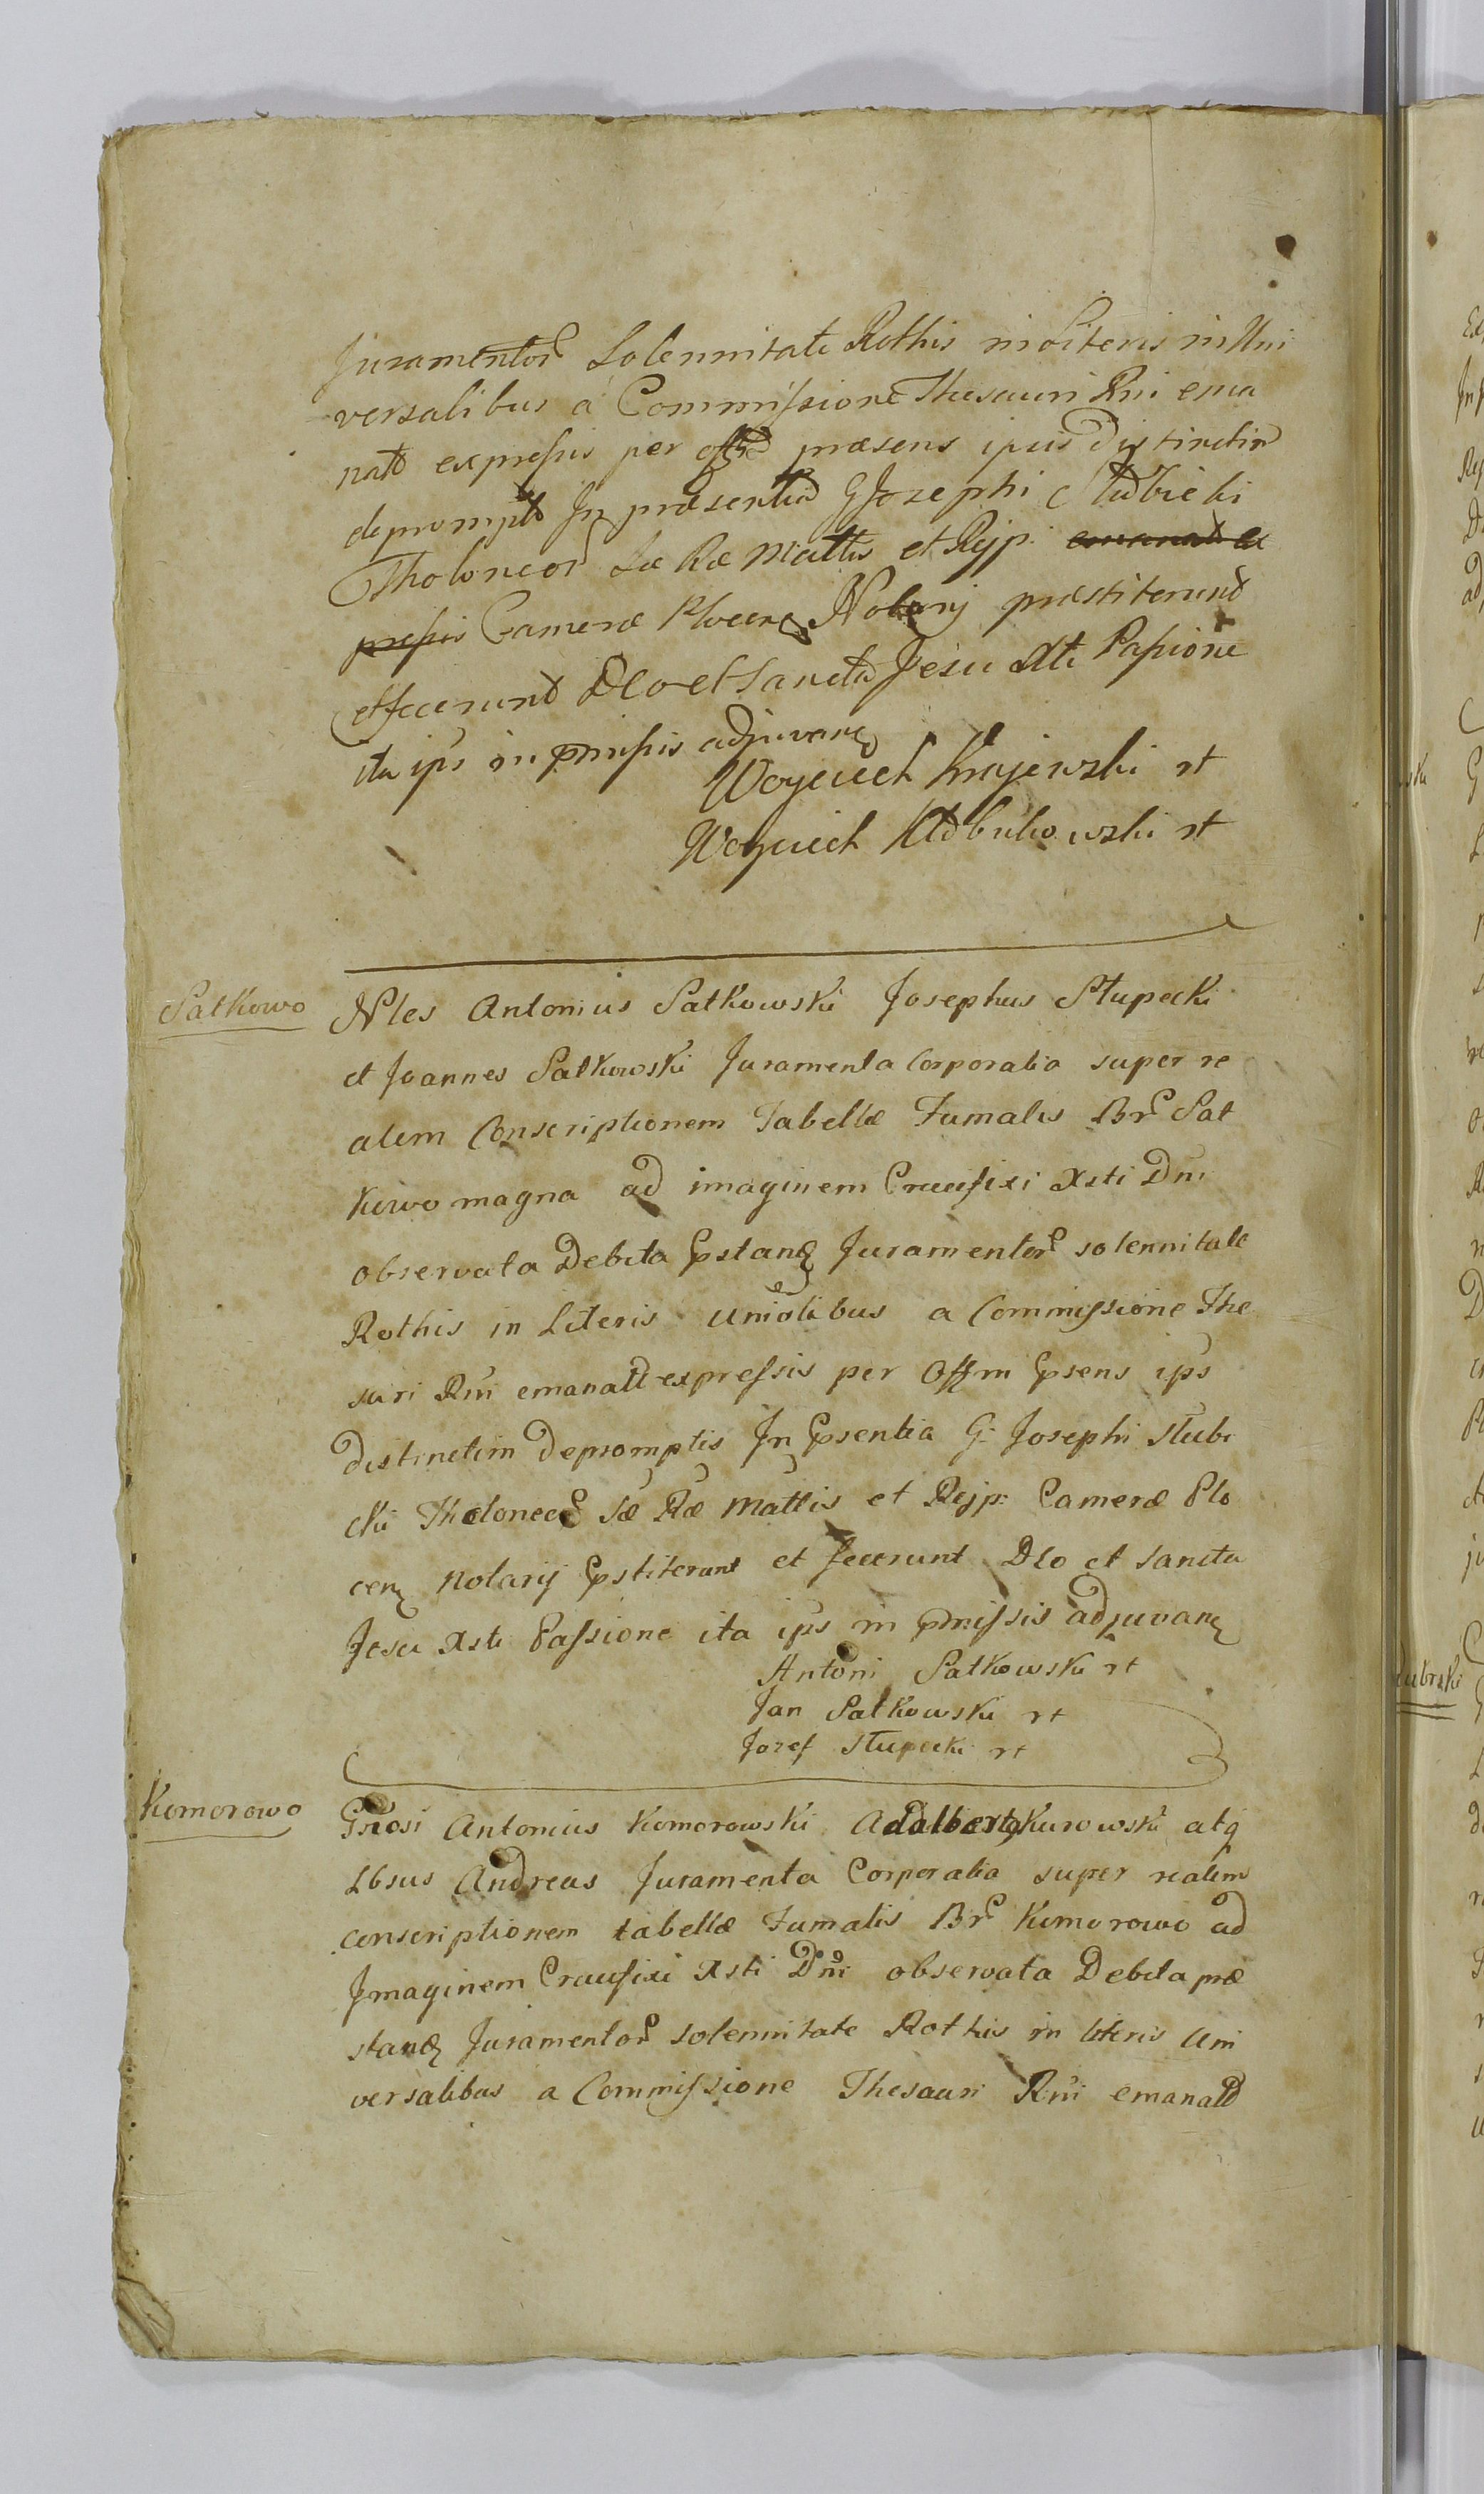 Juramentor Solennitate Rothis in Literis in Uni
versalibus a Commissione Thesauri Rni ema
natt expressis per offm præsens ipsis distinctim
depromptt In præsentia G Josephi Słubicki
Tholoneor Sæ Ræ Mattis et Rejp. emanatt ex
pressis Cameræ Plocen Notarij præstiterunt
et fecerunt Deo et Sancta Jesu Xti Passione
ita ips in præmissis adjuvan
Woyciech Krajewski rt
Woyciech Kłobukowski rt
Satkowo
Nles Antonius Satkowski Josephus Słupecki
et Joannes Satkowski Juramenta Corporalia super re
alem Conscriptionem Tabellæ Fumalis Br. Sat
kowo magna ad imaginem Crucifixi Xsti Dni
observata Debita pstand Juramentor solennitate
Rothis in Literis Uniolibus a Commissione The
suri Rni emanatt expressis per Offm psens ips
distinctim depromptis In psentia G. Josephi Słubi
cki Tholoneor Sæ Ræ Mattis et Rejp. Cameræ Plo
cen Notarij pstiterunt et fecerunt Deo et Sancta
Jesu Xsti Passione ita ips in pmissis adjuvan
Antoni Satkowski rt
Jan Satkowski rt
Jozef Słupecki rt
Komorowo
Gnosi Antonius Komorowski Adalbertg Kurowski atq
Lbsus Andreas Juramenta Corporalia super realem
conscriptionem tabellæ Fumalis Br. Komorowo ad
Jmaginem Crucifixi Xsti Dni observata Debita præ
stand Juramentor solennitate Rothis in literis Uni
versalibus a Commissione Thesauri Rni emanatt